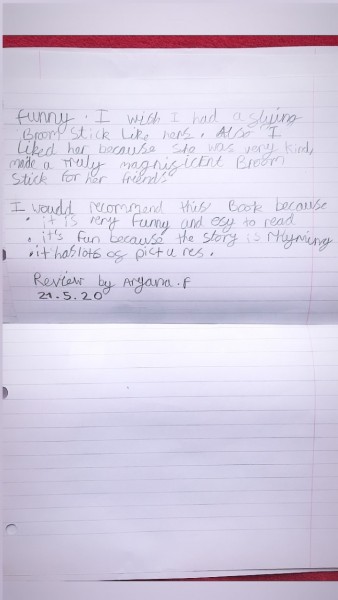 funny. I wish I had a flying
Broom stick like hers. Also I
liked her because she was very kind,
made a truly magnificent Broom
stick for her friends.
I would recommend this Book because
• it is very funny and esy to read
• it's fun because the story is rhyming
• it has lots of pictures.
Review by Aryana.f
21.5.20